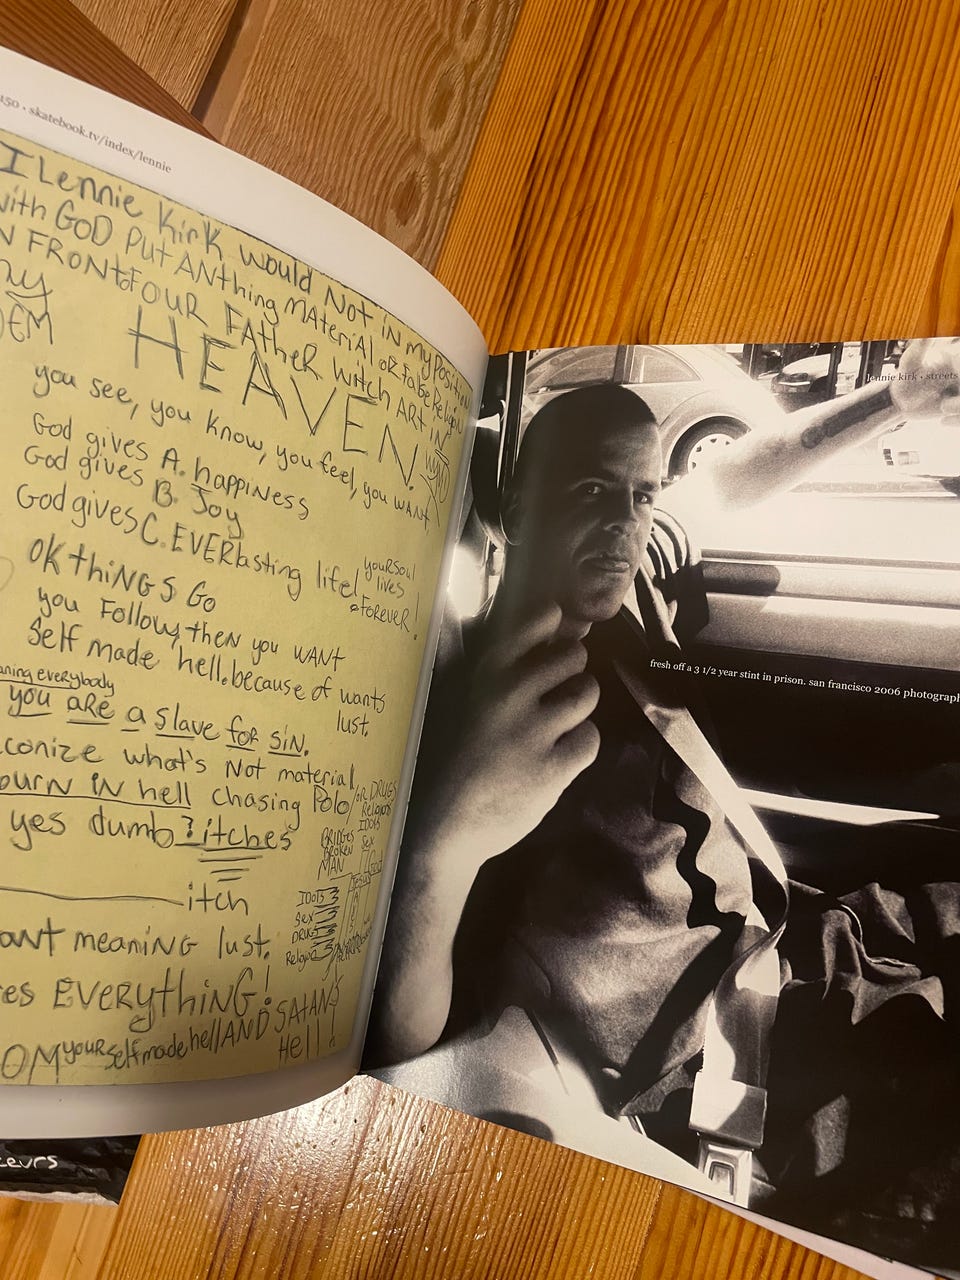 150 • skatebook.tv/index/lennie
I Lennie Kirk would Not iN my Position
with GOD Put ANthing MAteriAl or Fake Religion
N FRONt oF OUR FAtheR witch ARt iN
HEAVEN.
you see, you know, you feel, you want
God gives A. happiNess
God gives B. Joy
God gives C. EVERlasting life!
youR Soul
lives
FoREVER!
OK thiNGS Go
you Follow, then you WANt
Self made hell. because of wants
lust.
aning everybody
you aRe a Slave foR SiN.
conize what's Not material
ourn iN hell chasing Polo/
OR DRUGS
Religion
IDOlS
Sex
yes dumb ?itches
BRIDGES
BROKEN
MAN
itch
IDOlS
Sex
DRUGS
Religion
ant meaniNG lust.
es EVERythiNG!
OM youR Self made hell AND SAtANS
Hell!
lennie kirk • streets
fresh off a 3 1/2 year stint in prison. san francisco 2006 photograph